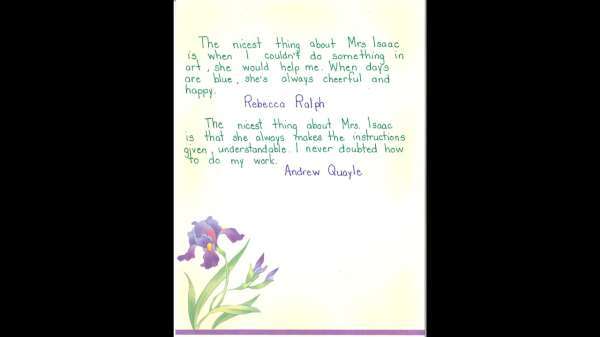 The nicest thing about Mrs Isaac
is when I couldn't do something in
art, she would help me. When day's
are blue, she's always cheerful and
happy.
Rebecca Ralph
The nicest thing about Mrs. Isaac
is that she always makes the instructions
given, understandable. I never doubted how
to do my work.
Andrew Quayle